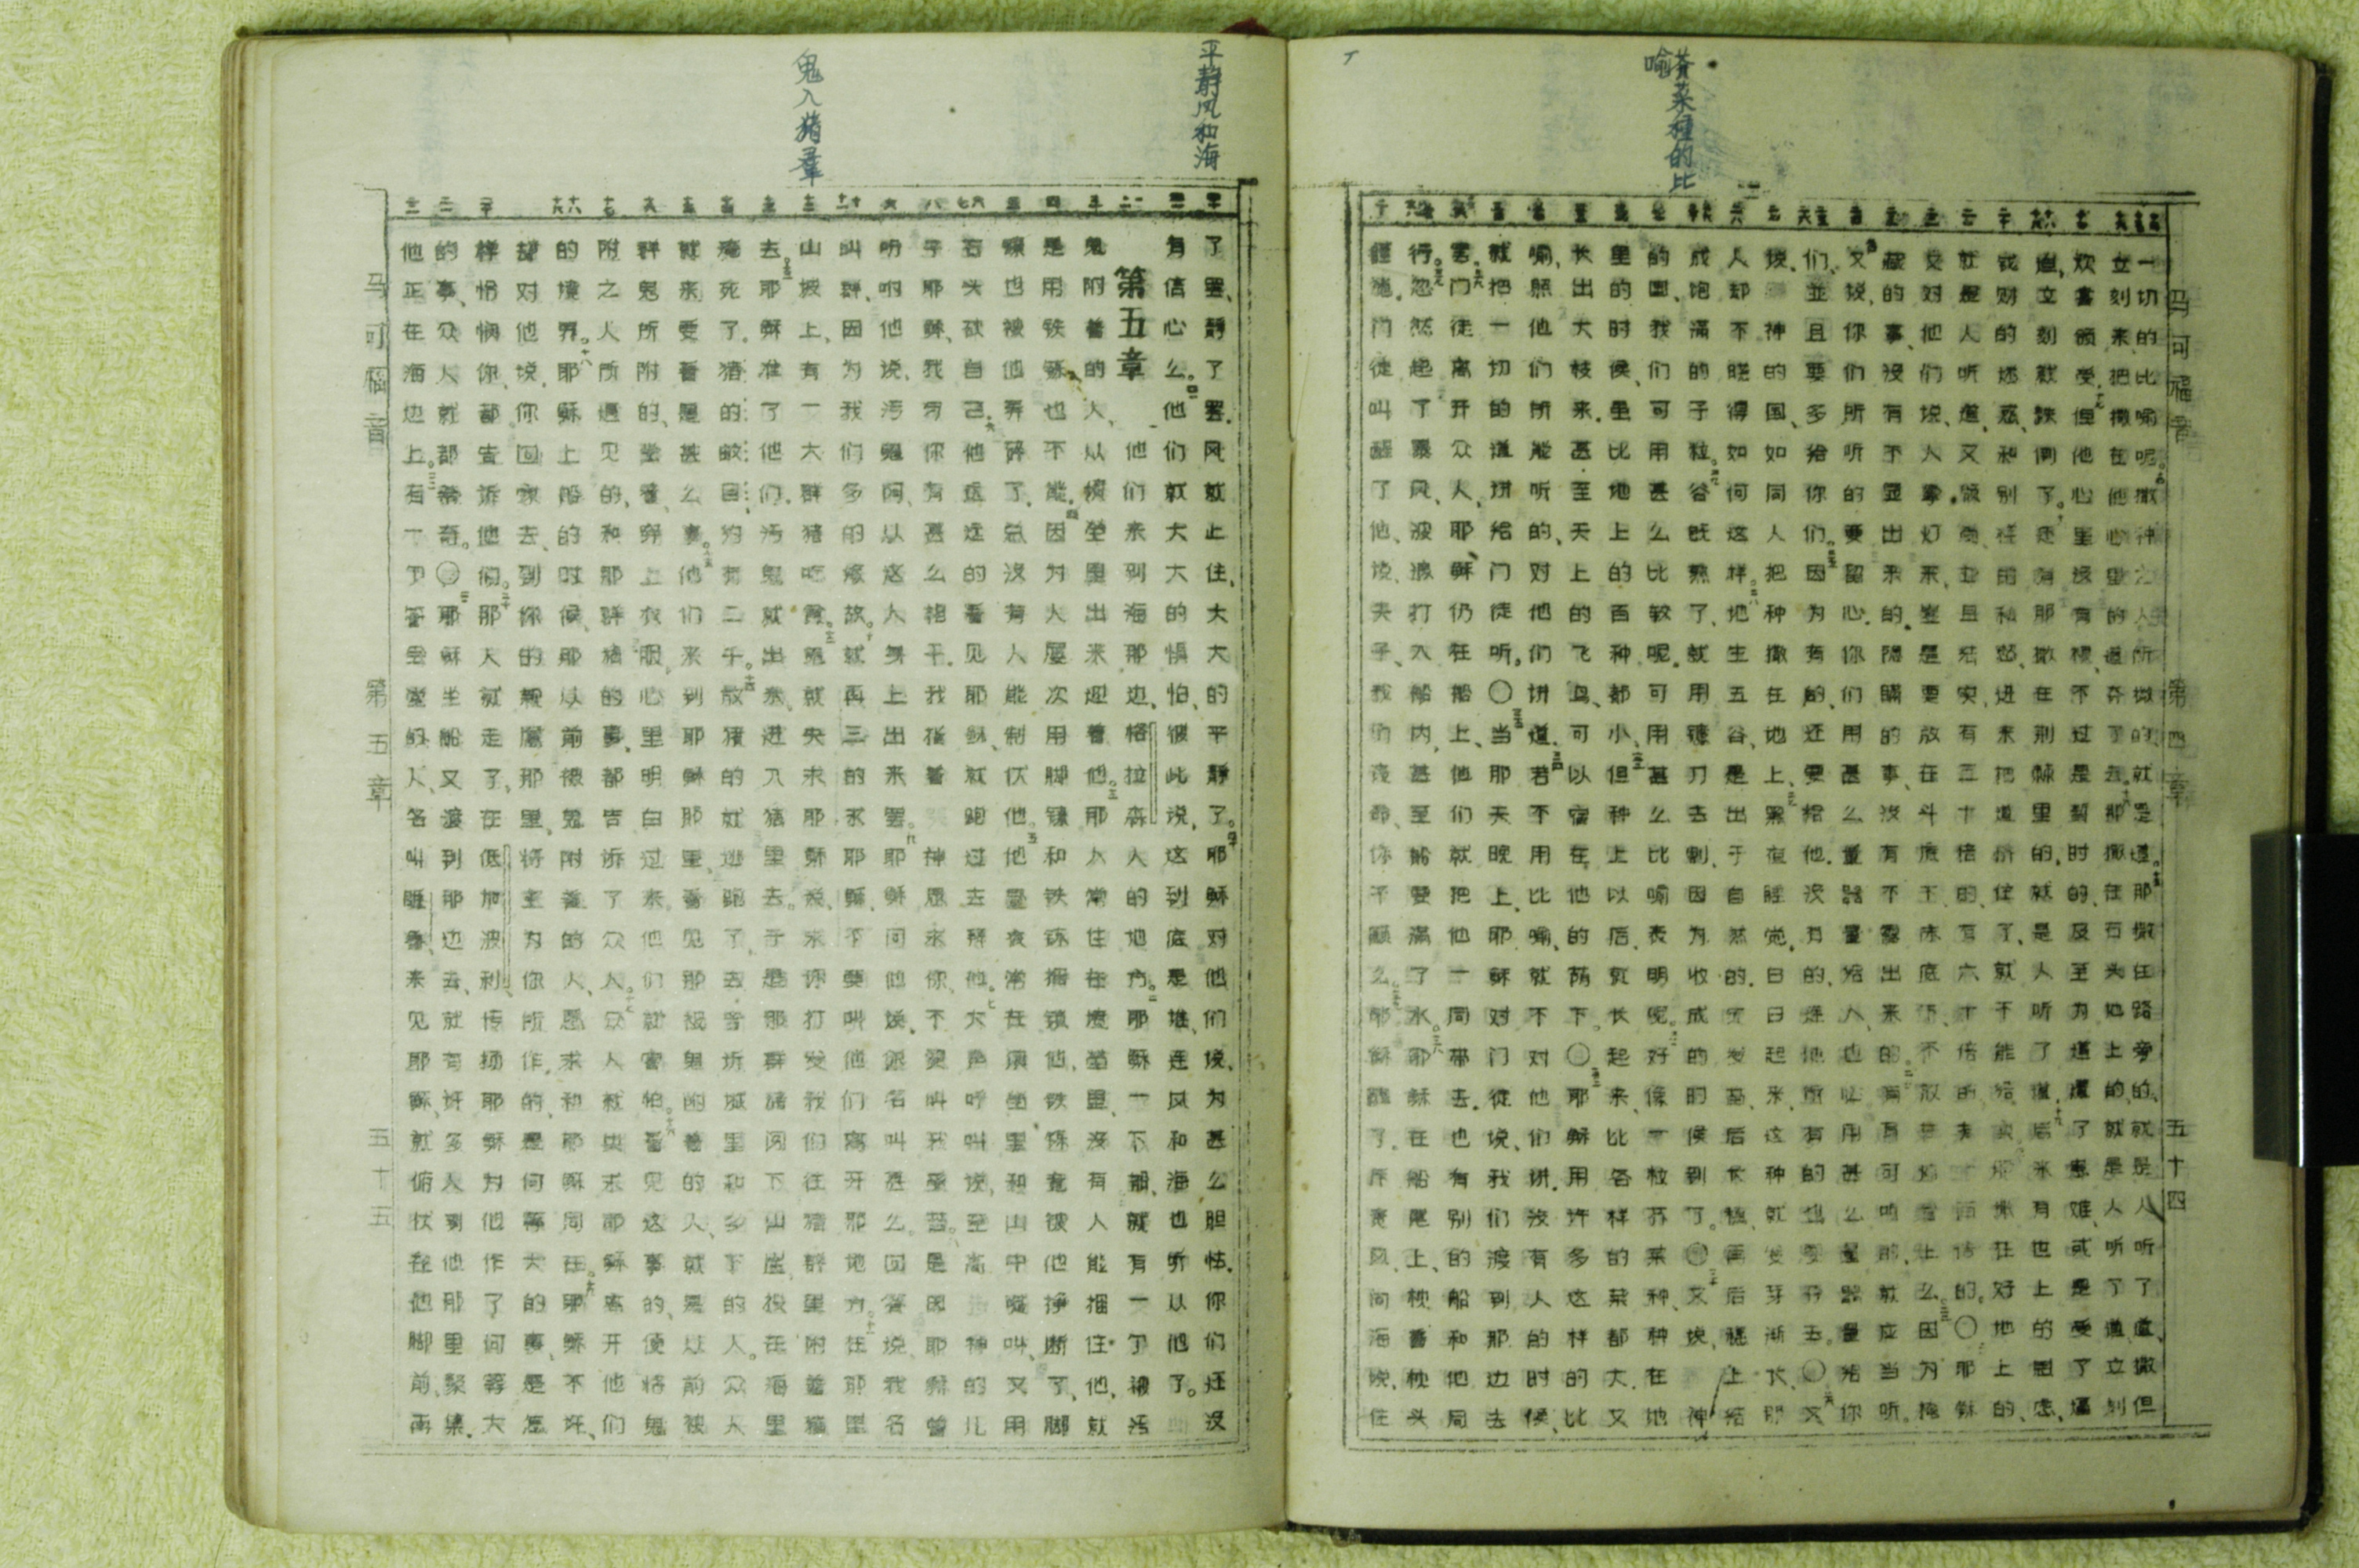 芥菜种的比
喻
马可福音 第四章 五十四
一切的比喻呢。撒种之人所撒的、就是道。那撒在路旁的、就是人听了道、撒但
立刻来、把撒在他心里的道夺了去。那撒在石头地上的、就是人听了道、立刻
欢喜领受。但他心里没有根、不过是暂时的、及至为道遭了患难、或是受了逼
迫、立刻就跌倒了。还有那撒在荆棘里的、就是人听了道、后来有世上的思虑、
钱财的迷惑、和别样的私慾、进来把道挤住了、就不能结实。那撒在好地上的、
就是人听道、又领受、並且结实、有三十倍的、有六十倍的、有一百倍的。〇耶稣
又对他们说、人拿灯来、岂是要放在斗底下、床底下、不放在灯台上么。因为掩
藏的事、没有不显出来的、隐瞒的事、没有不露出来的。有耳可听的、就应当听。
又说、你们所听的要留心。你们用甚么量器量给人、也必用甚么量器量给你
们、並且要多给你们。因为有的、还要给他。没有的、连他所有的也要夺去。〇又
说、神的国、如同人把种撒在地上、黑夜睡觉、白日起来、这种就发芽渐长、那
人却不晓得如何这样。地生五谷、是出于自然的。先发苗、后长穗、再后穗上结
成饱满的子粒。谷既熟了、就用镰刀去割、因为收成的时候到了。〇又说、神
的国、我们可用甚么比较呢、可用甚么比喻表明呢。好像一粒芥菜种、种在地
里的时候、虽比地上的百种都小、但种上以后、就长起来、比各样的菜都大、又
长出大枝来。甚至天上的飞鸟、可以宿在他的荫下。〇耶稣用许多这样的比
喻、照他们所能听的、对他们讲道。若不用比喻、就不对他们讲。没有人的时候、
就把一切的道讲给门徒听。〇当那天晚上、耶稣对门徒说、我们渡到那边去
罢。门徒离开众人、耶稣仍在船上、他们就把他一同带去。也有别的船和他同
行。忽然起了暴风、波浪打入船内、甚至船要满了水。耶稣在船尾上、枕着枕头
睡着、门徒叫醒了他、说、夫子、我们丧命、你不顾么。耶稣醒了、斥责风、向海说、住
平静风和海
鬼入猪群
了罢、静了罢。风就止住、大大的平静了。耶稣对他们说、为甚么胆怯。你们还没
有信心么。他们就大大的惧怕、彼此说、这到底是谁、连风和海也听从他了。
第五章 他们来到海那边、格拉森人的地方。耶稣一下船、就有一个被污
鬼附着的人、从坟茔里出来迎着他。那人常住在坟茔里、没有人能捆住他、就
是用铁链也不能。因为人屡次用脚镣和铁链捆锁他、铁链竟被他挣断了、脚
镣也被他弄碎了。总没有人能制伏他。他昼夜常在坟茔里和山中喊叫、又用
石头砍自己。他远远的看见耶稣、就跑过去拜他。大声呼叫说、至高神的儿
子耶稣、我与你有甚么相干。我指着神恳求你、不要叫我受苦。是因耶稣曾
吩咐他说、污鬼阿、从这人身上出来罢。耶稣问他说、你名叫甚么。回答说、我名
叫群、因为我们多的缘故。就再三的求耶稣、不要叫他们离开那地方。在那里
山坡上、有一大群猪吃食。鬼就央求耶稣说、求你打发我们往猪群里附着猪
去。耶稣准了他们。污鬼就出来、进入猪里去。于是那群猪闯下山崖、投在海里、
淹死了。猪的数目、约有二千。放猪的就逃跑了、去告诉城里和乡下的人。众人
就来要看是甚么事。他们来到耶稣那里、看见那被鬼附着的人、就是从前被
群鬼所附的、坐着、穿上衣服、心里明白过来。他们就害怕。看见这事的、便将鬼
附之人所遇见的、和那群猪的事、都告诉了众人。众人就央求耶稣离开他们
的境界。耶稣上船的时候、那从前被鬼附着的人、恳求和耶稣同在。耶稣不许、
却对他说、你回家去、到你的亲属那里、将主为你所作的、是何等大的事、是怎
样怜悯你、都告诉他们。那人就走了、在低加波利、传扬耶稣为他作了何等大
的事、众人就都希奇。〇耶稣坐船又渡到那边去、就有许多人到他那里聚集。
他正在海边上。有一个管会堂的人、名叫睚鲁、来见耶稣、就俯伏在他脚前、再
马可福音 第五章 五十五